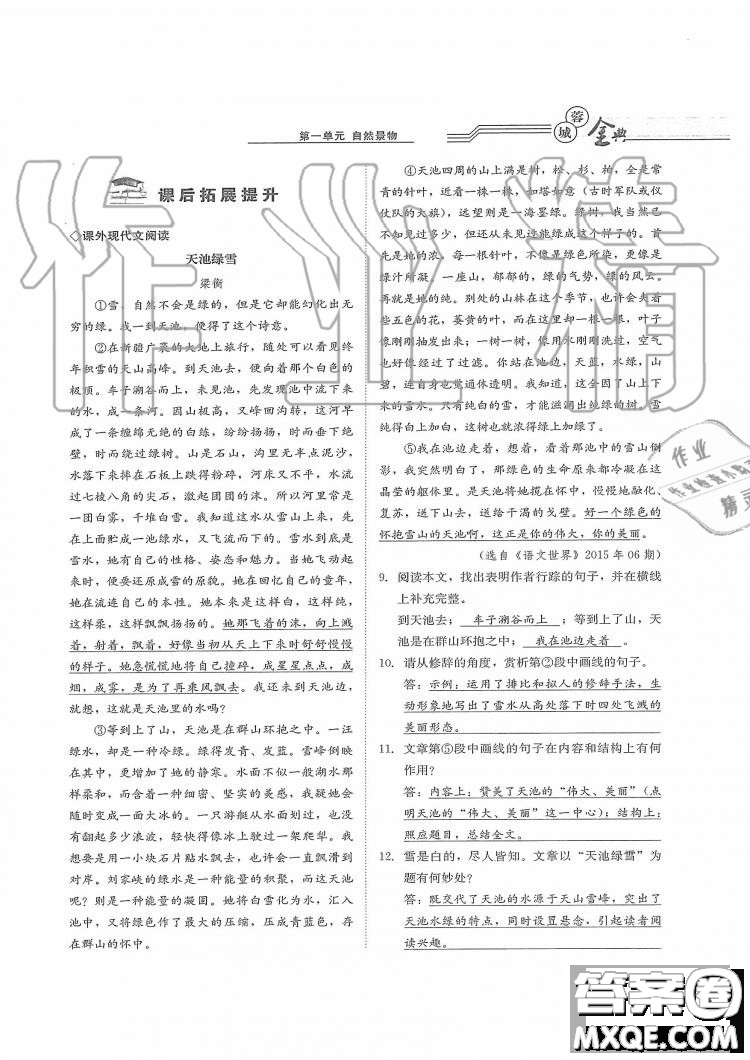 第一单元 自然景物
蓉城金典
课后拓展提升
◇课外现代文阅读
天池绿雪
梁衡
①雪，自然不会是绿的，但是它却能幻化出无
穷的绿。我一到天池，便得了这个诗意。
②在新疆广袤的大地上旅行，随处可以看见终
年积雪的天山高峰。到天池去，便向着那个白色的
极顶。车子溯谷而上，未见池，先发现池中流下来
的水，成一条河。因山极高，又峰回沟转，这河早
成了一条缠绵无绝的白练，纷纷扬扬，时而垂下绝
壁，时而绕过绿树。山是石山，沟里无半点泥沙，
水落下来摔在石板上跌得粉碎，河床又不平，水流
过七棱八角的尖石，激起团团的沫。所以河里常是
一团白雾，千堆白雪。我知道这水从雪山上来，先
在上面贮成一池绿水，又飞流而下的。雪水到底是
雪水，她有自己的性格、姿态和魅力。当她飞动起
来时，便要还原成雪的原貌。她在回忆自己的童年，
她在流连自己的本性。她本来是这样白，这样纯，
这样柔，这样飘飘扬扬的。她那飞着的沫，向上溅
着，射着，飘着，好像当初从天上下来时舒舒慢慢
的样子。她急慌慌地将自己撞碎，成星星点点，成
烟，成雾，是为了再乘风飘去。我还未到天池边，
就想，这就是天池里的水吗？
③等到上了山，天池是在群山环抱之中。一汪
绿水，却是一种冷绿。绿得发青、发蓝。雪峰倒映
在其中，更增加了她的静寒。水面不似一般湖水那
样柔和，而含着一种细密、坚实的美感，我疑她会
随时变成一面大冰的。一只游艇从水面划过，也没
有翻起多少浪波，轻快得像冰上驶过一架爬犁。我
想要是用一小块石片贴水飘去，也许会一直飘滑到
对岸。刘家峡的绿水是一种能量的积聚，而这天池
呢？则是一种能量的凝固。她将白雪化为水，汇入
池中，又将绿色作了最大的压缩，压成青蓝色，存
在群山的怀中。
④天池四周的山上满是树，杉、松、柏，全是常
青的针叶，近看一株一株，如塔如纛（古时军队或仪
仗队的大旗），远望则是一海墨绿。绿树，我当然已
不知见过多少，但还从未见过能绿成这个样子的。首
先是她的浓，每一根针叶，不像是绿色所染，更像是
绿汁所凝。一座山，郁郁的，绿的气势，绿的风云。
再就是她的纯。别处的山林在这个季节，也许会夹着
些五色的花，萎黄的叶，而在这里却一根一根，叶子
像刚刚抽发出来；一树一树，像用水刚刚洗过，空气
也好像经过了过滤。你站在池边，天蓝，水绿，山
碧，连自身也觉通体透明。我知道，这全因了山上下
来的雪水。只有纯白的雪，才能滋润出纯绿的树。雪
纯得白上加白，这树也就浓得绿上加绿了。
⑤我在池边走着，想着，看着那池中的雪山倒
影，我突然明白了，那绿色的生命原来都冷凝在这
晶莹的躯体里。是天池将她揽在怀中，慢慢地融化、
复苏，送下山去，送给干渴的戈壁。好一个绿色的
怀抱雪山的天池啊，这正是你的伟大，你的美丽。
（选自《语文世界》2015年06期）
9. 阅读本文，找出表明作者行踪的句子，并在横线
上补充完整。
到天池去； 车子溯谷而上 ；等到上了山，天
池是在群山环抱之中； 我在池边走着 。
10. 请从修辞的角度，赏析第②段中画线的句子。
答：示例：运用了排比和拟人的修辞手法，生
动形象地写出了雪水从高处落下时四处飞溅的
美丽形态。
11. 文章第⑤段中画线的句子在内容和结构上有何
作用？
答：内容上：赞美了天池的“伟大、美丽”（点
明天池的“伟大、美丽”这一中心）；结构上：
照应题目，总结全文。
12. 雪是白的，尽人皆知。文章以“天池绿雪”为
题有何妙处？
答：既交代了天池的水源于天山雪峰，突出了
天池水绿的特点，同时设置悬念，引起读者阅
读兴趣。
作业精
作业
答案圈
MXQE.COM